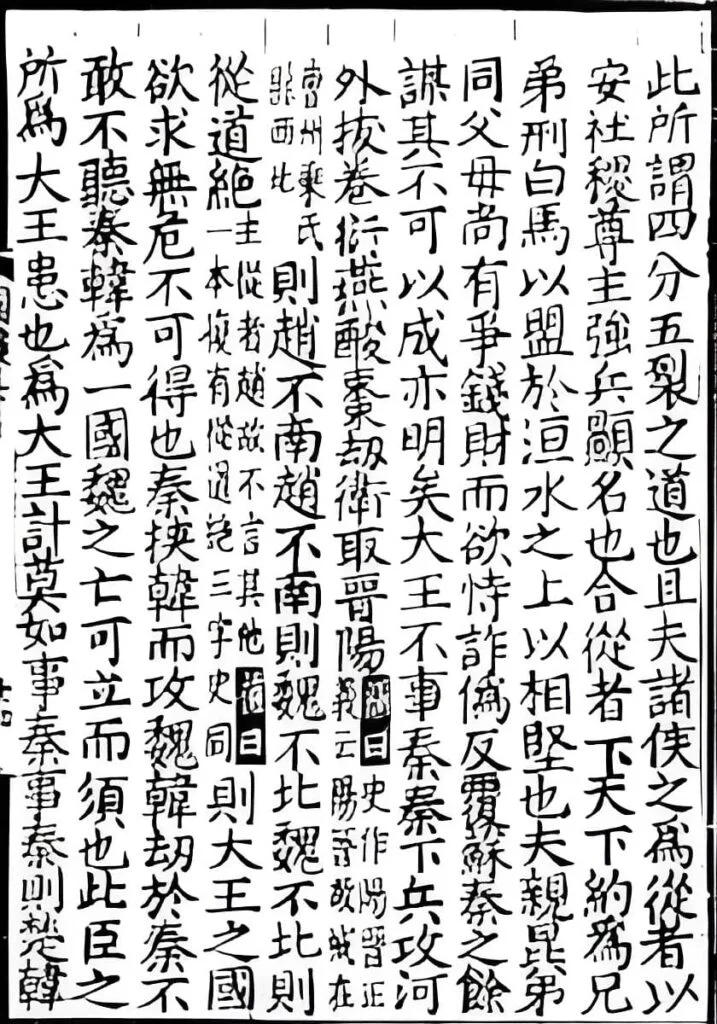 此所謂四分五裂之道也且夫諸侯之爲從者以
安社稷尊主強兵顯名也合從者下天下納爲兄
弟刑白馬以盟於洹水之上以相堅也夫親昆弟
同父毋尚有爭錢財而欲恃詐僞反覆蘇秦之餘
謀其不可以成亦明矣大王不事秦秦下兵攻河
外拔卷衍燕酸棗劫衛取晉陽曰史作陽晉正義云陽晉故城在
曹州乘氏縣西北則趙不南趙不南則魏不北魏不北則
從道絕主從者趙故不言其他曰一本復有從道絕三字史同則大王之國
欲求無危不可得也秦挾韓而攻魏韓劫於秦不
敢不聽秦韓爲一國魏之亡可立而須也此臣之
所爲大王患也爲大王計莫如事秦事秦則楚韓